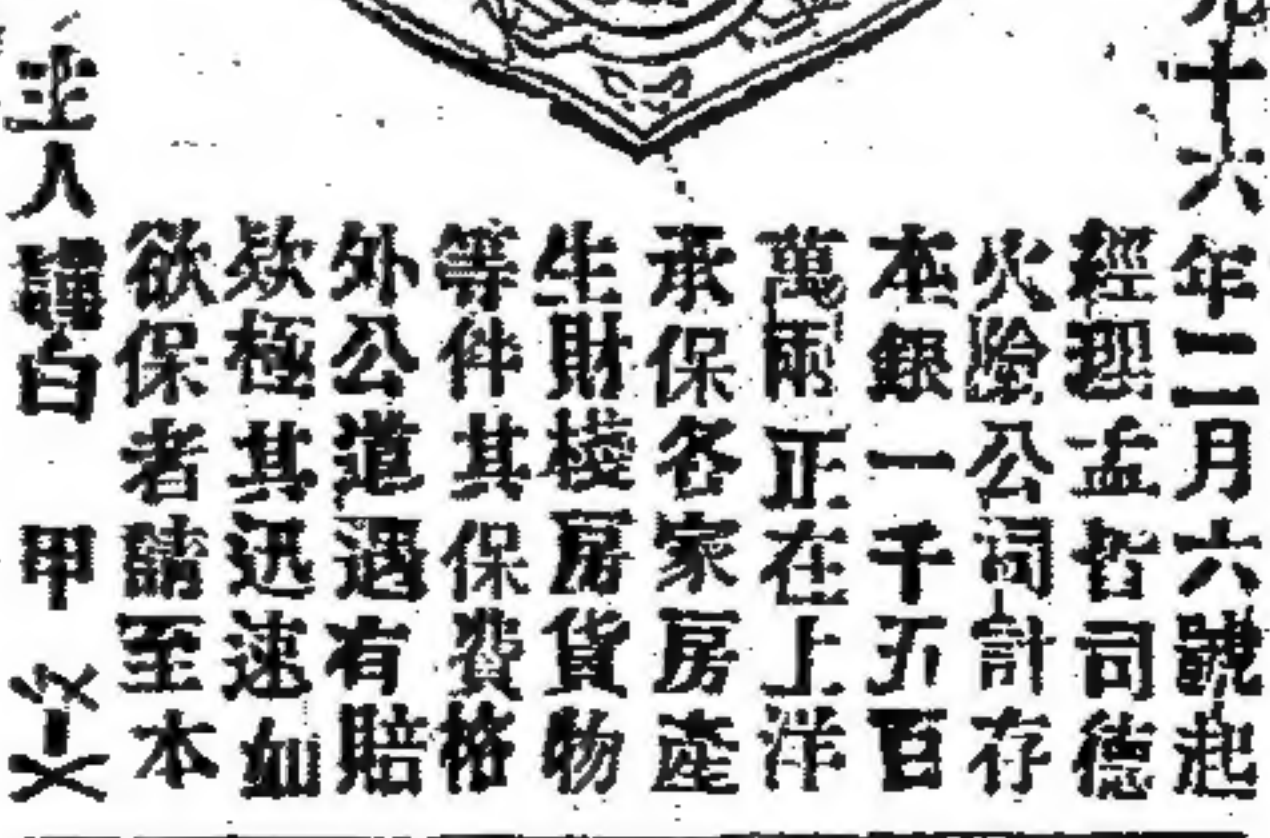 十六年二月六號起
經理孟哲司德
火險公司計存
本銀一千五百
萬兩正在上洋
承保各家房產
生財棧房貨物
等件其保費格
外公道遇有賠
欵極其迅速如
欲保者請至本
主人謹白 甲